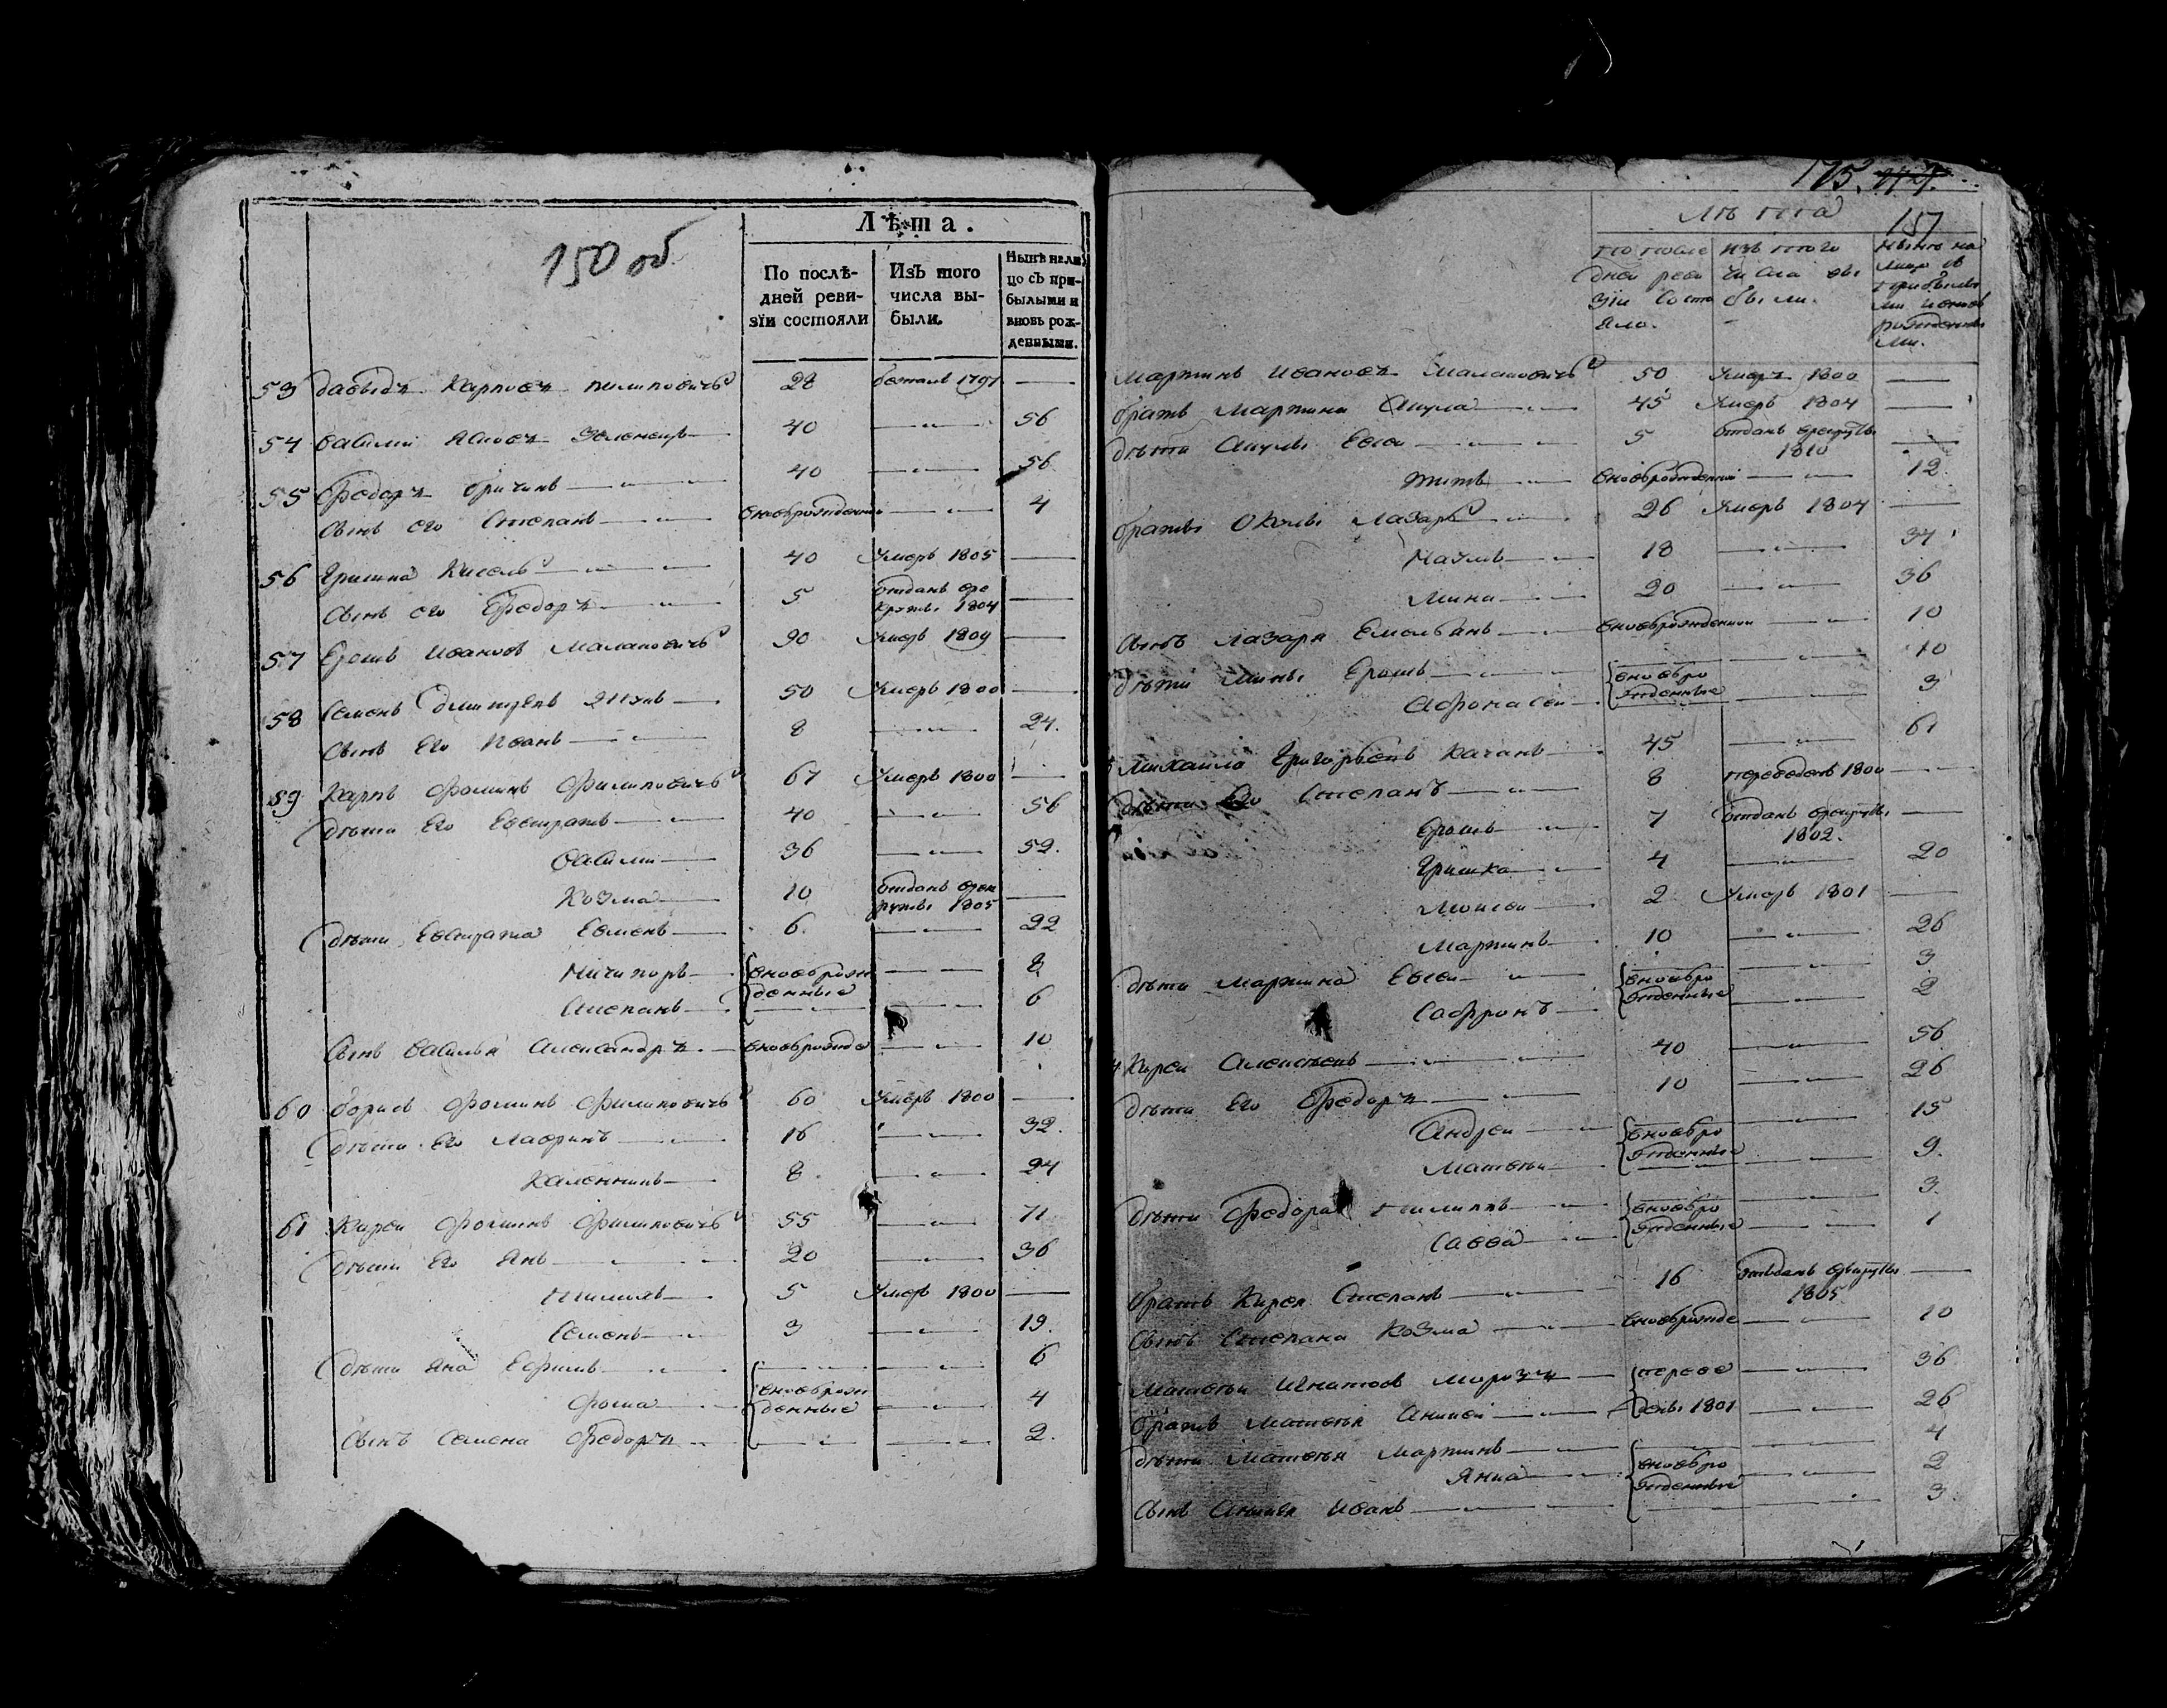 150 об
Лѣта.
По послѣ-
дней реви-
зїи состояли
Изъ того
числа вы-
были.
Нынѣ нали-
цо съ при-
былыми и
вновь рож-
денными.
53 Давыдъ Карповъ Пилиповичъ 28 бежалъ 1797 —
54 Василий Зеленецъ 40 — 56
55 Федоръ Бричинъ 40 — 56
Сынъ его Степанъ новорожденны — 4
56 Гришка Кисель 40 умеръ 1805 —
Сынъ его Федоръ 5 отданъ вре
круты 1804 —
57 Ерошъ Ивановъ Малаховичъ 90 умеръ 1809 —
58 Семенъ Дмитревъ 50 умеръ 1800 —
Сынъ его Иванъ 8 — 24.
59 Карпъ Фоминъ Филиповичъ 67 умеръ 1800 —
Дѣти его Евстратъ 40 — 56
Василий 36 — 52.
Козма 10 отданъ врек
руты 1805 —
Дѣти Евстрата Евменъ 6. — 22
Ничипоръ вновьрож — 8.
денные
Степанъ — 6
Сынъ Василья Александръ вновьрожде — 10
60 Борисъ Фоминъ Филиповичъ 60 умеръ 1800 —
Дѣти его Лавринъ 16 — 32.
Каленникъ 8 — 24
61 Кирей Фоминъ Филиповичъ 55 — 71
Дѣти его Янъ 20 — 36
Пилипъ 5 умеръ 1800 —
Семенъ 3 — 19.
Дѣти Яна Ефимъ — 6
вновьрож
Фома денные — 4
Сынъ Семена Федоръ — 2.
175.
157
Лѣта
по после
дней реви
зїи состо
яло.
изъ того
числа вы
были.
Нынѣ на
лицо съ
прибылы
ми и вновь
рожденны
ми.
Мартинъ Ивановъ Малаховичъ 50 умеръ 1800 —
Братъ Мартина Акула 45 умеръ 1804 —
Дѣти Акулы Евсей 5 отданъ врекруты
1810 —
Титъ вновьрожденны — 12.
Братья Окулы Лазарь 26 умеръ 1804 —
Наумъ 18 — 34
Мина 20 — 36
Сынъ Лазаря Емельянъ вновьрожденны — 10
Дѣти Мины Ерошъ — 10
вновьро
жденные
Афонасей — 3
Михайло Григорьевъ Качанъ 45 — 61
Дѣти его Степанъ 8 переведенъ 1800 —
Ерошъ 7 отданъ врекруты
1802. —
Гришка 4 — 20
Моисей 2 умеръ 1801 —
Мартинъ 10 — 26
Дѣти Мартина Евсей — 3
вновьро
жденные
Сафронъ — 2
Кирей Алексѣевъ 40 — 56
Дѣти его Федоръ 10 — 26
Андрей — 15
вновьро
жденные
Матвей — 9.
Дѣти Федора Пилипъ — 3.
вновьро
жденные
Савва — 1
Братъ Кирея Степанъ 16 отданъ врекруты
1805 —
Сынъ Степана Козма вновьрожде — 10
Матвей Игнатовъ Морозъ переве — 36
Братъ Матвея Алексей дены 1801 — 26
Дѣти Матвея Мартинъ — 4
вновьро
Янка жденные — 2
Сынъ Алексея Иванъ — 3